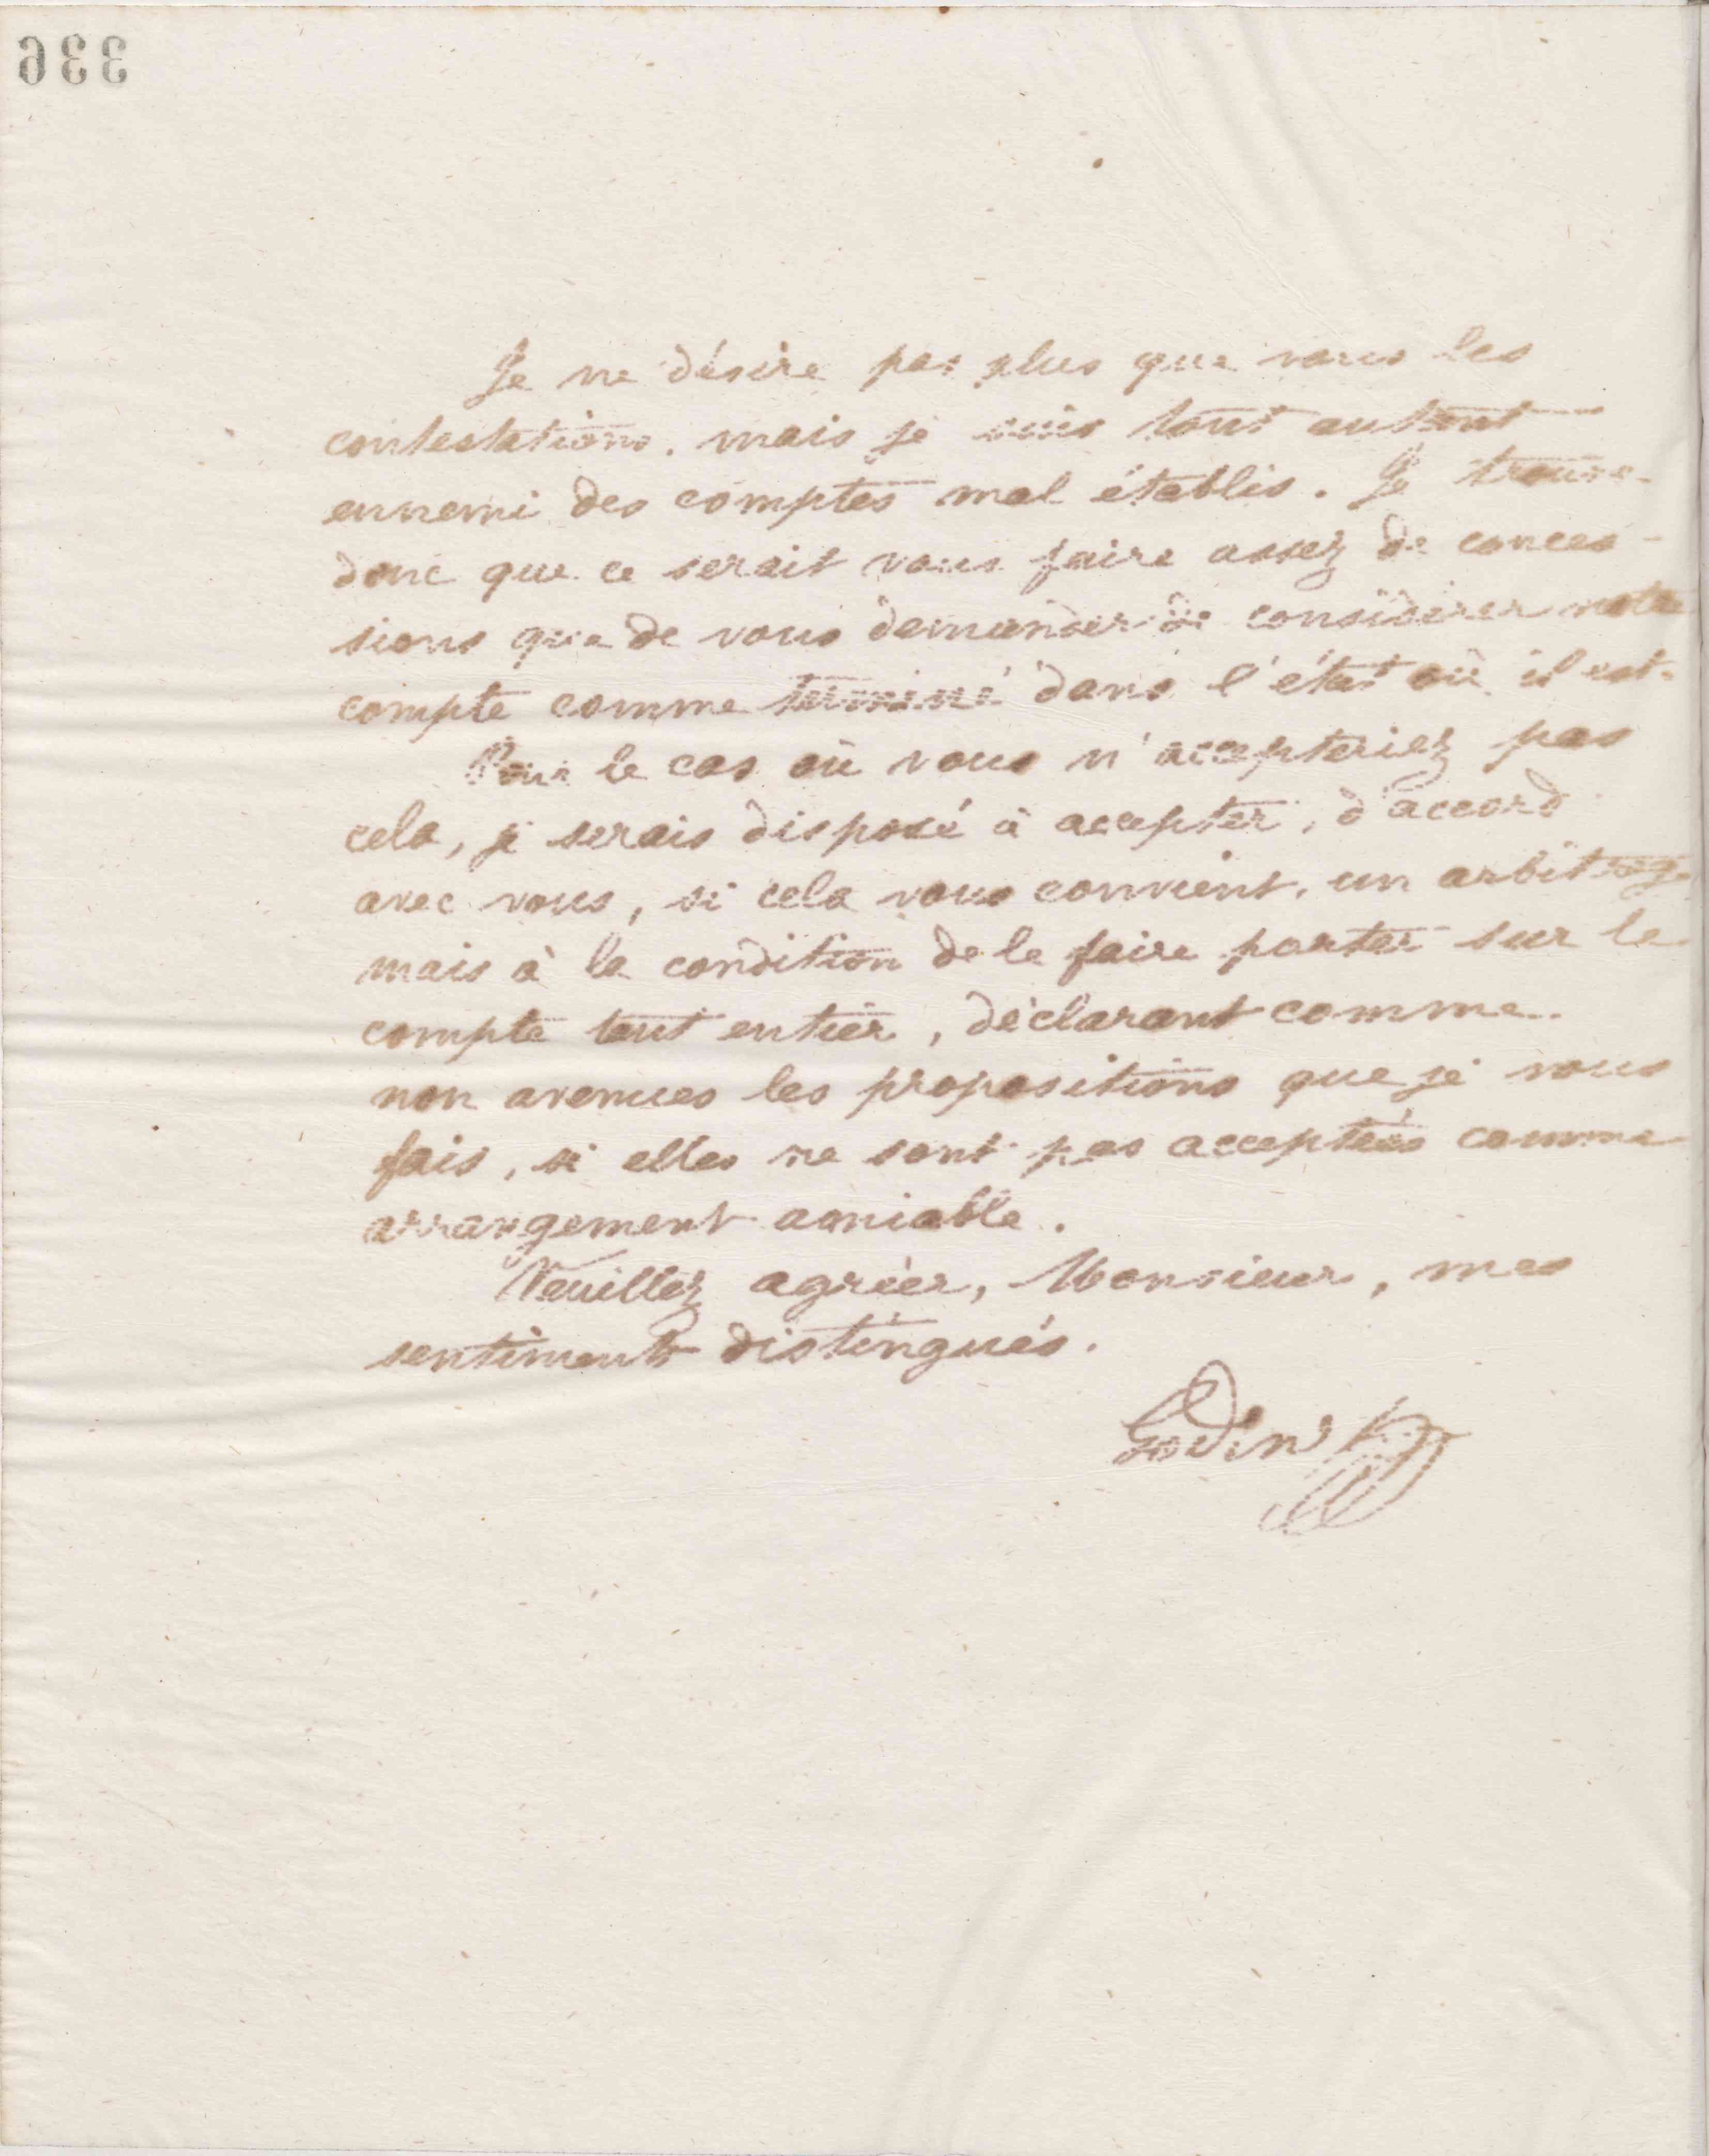 336
Je ne désire pas plus que vous les
contestations, mais je suis tout autant
ennemi des comptes mal établis. Je trouve
donc que ce serait vous faire assez de conces-
sions que de vous demander de considérer notre
compte comme terminé dans l'état où il est.
Pour le cas où vous n'accepteriez pas
cela, je serais disposé à accepter, d'accord
avec vous, si cela vous convient, un arbitrage
mais à la condition de le faire porter sur le
compte tout entier, déclarant comme
non avenues les propositions que je vous
fais, si elles ne sont pas acceptées comme
arrangement amiable.
Veuillez agréer, Monsieur, mes
sentiments distingués.
Godin